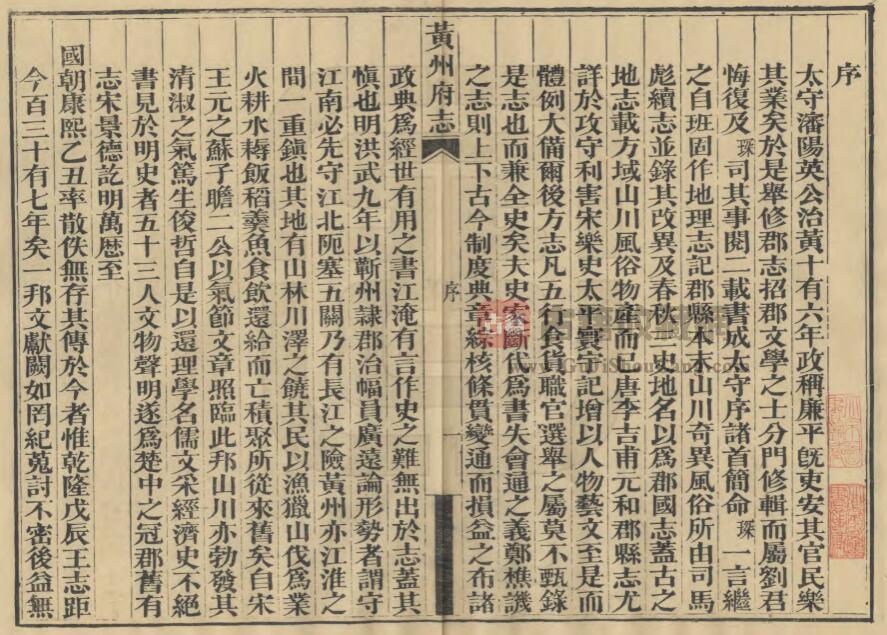 序
太守瀋陽英公治黃十有六年政稱廉平旣吏安其官民樂
其業矣於是舉修郡志招郡文學之士分門修輯而屬劉君
悔復及琛司其事閱二載書成太守序諸首簡命琛一言繼
之自班固作地理志記郡縣本末山川奇異風俗所由司馬
彪續志並錄其改異及春秋三史地名以為郡國志蓋古之
地志載方域山川風俗物產而已唐李吉甫元和郡縣志尤
詳於攻守利害宋樂史太平寰宇記增以人物藝文至是而
體例大備爾後方志凡五行食貨職官選舉之屬莫不甄錄
是志也而兼全史矣夫史家斷代為書失會通之義鄭樵譏
之志則上下古今制度典章綜核條貫變通而損益之布諸
黃州府志
序
一
政典為經世有用之書江淹有言作史之難無出於志蓋其
愼也明洪武九年以蘄州隸郡治幅員廣遠論形勢者謂守
江南必先守江北阨塞五關乃有長江之險黃州亦江淮之
間一重鎮也其地有山林川澤之饒其民以漁獵山伐為業
火耕水耨飯稻羹魚食飲還給而亡積聚所從來舊矣自宋
王元之蘇子瞻二公以氣節文章照臨此邦山川亦勃發其
清淑之氣篤生俊哲自是以還理學名儒文采經濟史不絕
書見於明史者五十三人文物聲明遂為楚中之冠郡舊有
志宋景德訖明萬歷至
國朝康熙乙丑率散佚無存其傳於今者惟乾隆戊辰王志距
今百三十有七年矣一邦文獻闕如罔紀蒐討不密後益無